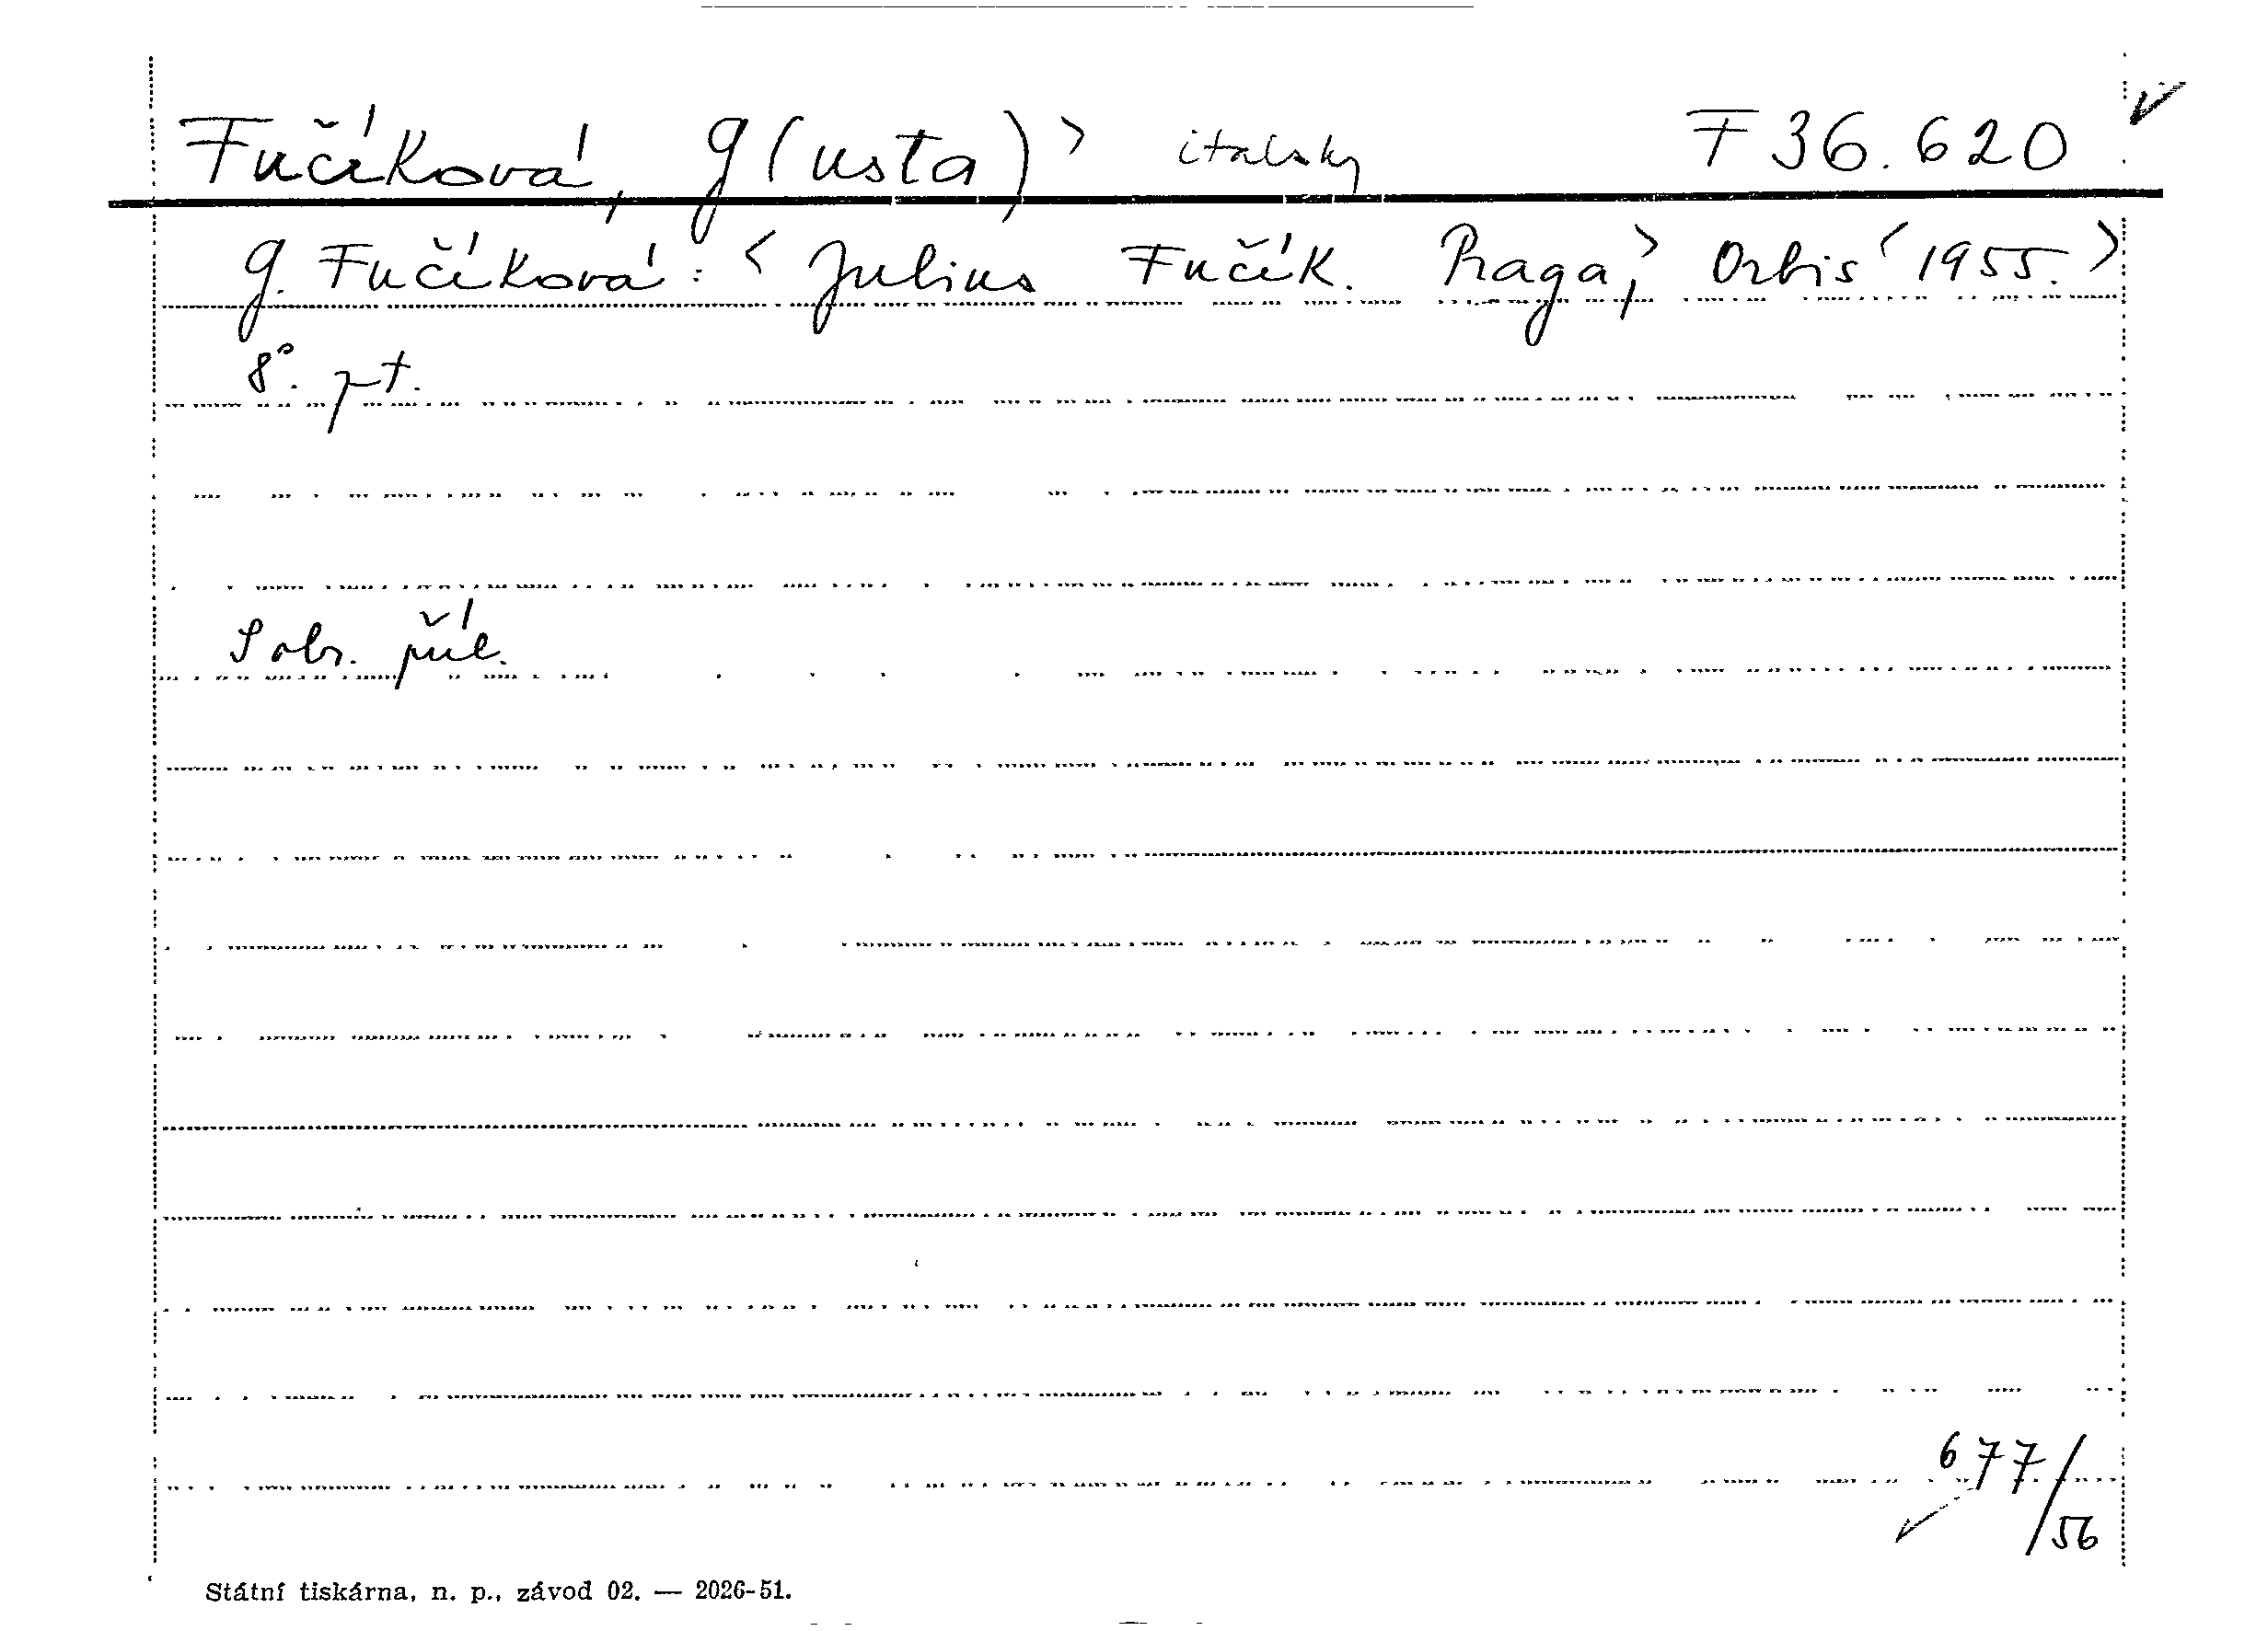 Fučíková, G(usta) > italsky F 36.620 ✓
G. Fučíková: < Julius Fučík. Praga, > Orbis < 1955. >
8°. pt.
S obr. příl.
677/56
Státní tiskárna, n. p., závod 02. — 2026-51.